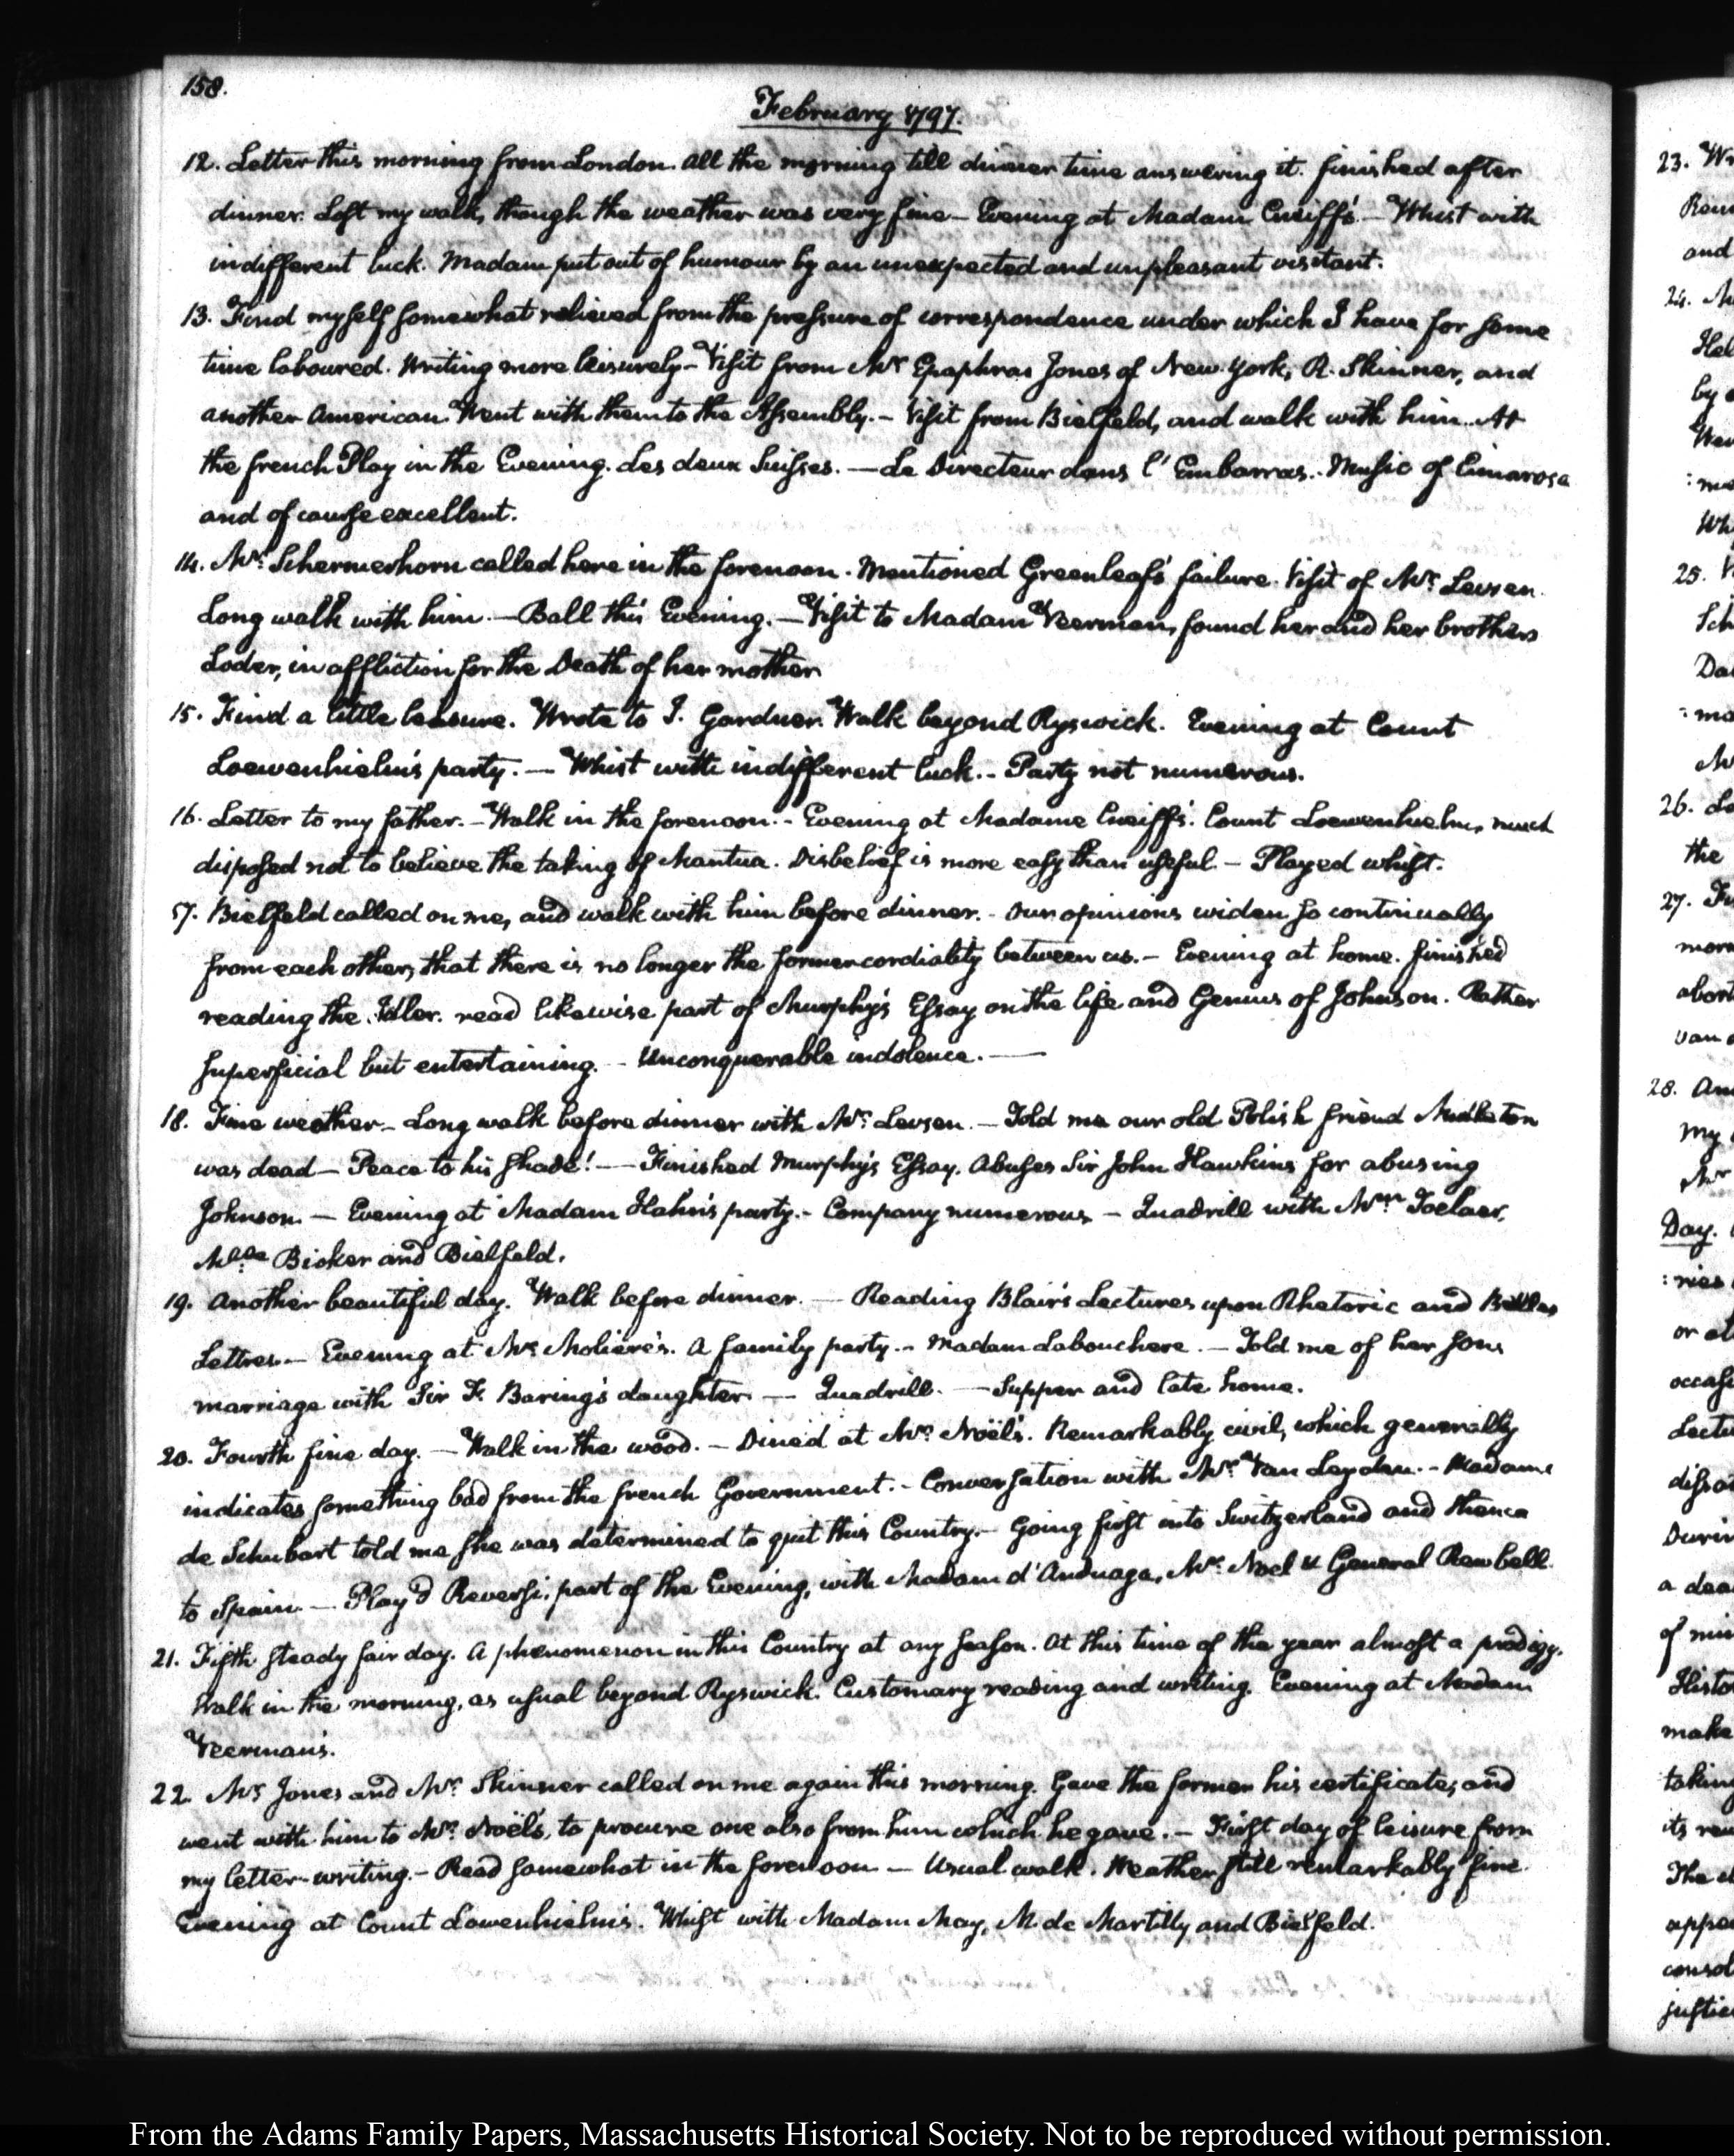 158.
February 1797.
12. Letter this morning from London. All the morning till dinner time answering it. finished after
dinner. Lost my walk, though the weather was very fine — Evening at Madam Creiff's — Whist with
indifferent luck. Madam put out of humour by an unexpected and unpleasant visitant.
13. Find myself somewhat relieved from the pressure of correspondence under which I have for some
time laboured. Writing more leisurely — Visit from Mr. Epaphras Jones of New York, R. Skinner, and
another American. Went with them to the Assembly. — Visit from Bielfeld, and walk with him. At
the french Play in the Evening. Les deux Suisses. — Le Directeur dans l'Embarras. Music of Cimarosa
and of course excellent.
14. Mr. Schermerhorn called here in the forenoon. Mentioned Greenleaf's failure. Visit of Mr. Levsen.
Long walk with him. — Ball this Evening. — Visit to Madam Veerman, found her and her brothers
Loder, in affliction for the Death of her mother
15. Find a little leisure. Wrote to J. Gardner. Walk beyond Ryswick. Evening at Count
Loewenhielm's party. — Whist with indifferent luck. — Party not numerous.
16. Letter to my father. — Walk in the forenoon. — Evening at Madame Creiff's. Count Loewenhielm, much
disposed not to believe the taking of Mantua. Disbelief is more easy than useful. — Played whist.
17. Bielfeld called on me, and walk with him before dinner. — Our opinions widen so continually
from each other, that there is no longer the former cordiality between us. — Evening at home. finished
reading the Idler. read likewise part of Murphy's Essay on the life and Genius of Johnson. Rather
superficial but entertaining. — Unconquerable indolence. —
18. Fine weather — Long walk before dinner with Mr. Levsen. — Told me our old Polish friend Midleton
was dead — Peace to his shade! — Finished Murphy's Essay. Abuses Sir John Hawkins for abusing
Johnson. — Evening at Madam Hahn's party. — Company numerous — Quadrill with Mrs. Toelaer,
Mlle. Bicker and Bielfeld.
19. Another beautiful day. Walk before dinner. — Reading Blair's Lectures upon Rhetoric and Belles
Lettres. — Evening at Mr. Molière's. A family party. — Madam Labouchere. — Told me of her sons
marriage with Sir F. Baring's daughter — Quadrill. — Supper and late home.
20. Fourth fine day. — Walk in the wood. — Dined at Mr. Noël's. Remarkably civil, which generally
indicates something bad from the french Government. — Conversation with Mr. Van Leyden. — Madame
de Schubart told me she was determined to quit this Country. — Going first into Switzerland and thence
to Spain — Play'd Reversi, part of the Evening, with Madam d'Anduaga, Mr. Noel & General Rewbell.
21. Fifth steady fair day. A phenomenon in this Country at any season. At this time of the year almost a prodigy.
Walk in the morning, as usual beyond Ryswick. Customary reading and writing. Evening at Madam
Veerman's.
22. Mr. Jones and Mr. Skinner called on me again this morning. Gave the former his certificate, and
went with him to Mr. Noël's, to procure one also from him which he gave. — First day of leisure from
my letter-writing. — Read somewhat in the forenoon — Usual walk. Weather still remarkably fine.
Evening at Count Lowenhielm's. Whist with Madam May, M. de Martilly and Bielfeld.
23.
and
24.
by
25.
26.
the
27.
28.
my
Day.
or
a
of
make
taking
its
From the Adams Family Papers, Massachusetts Historical Society. Not to be reproduced without permission.